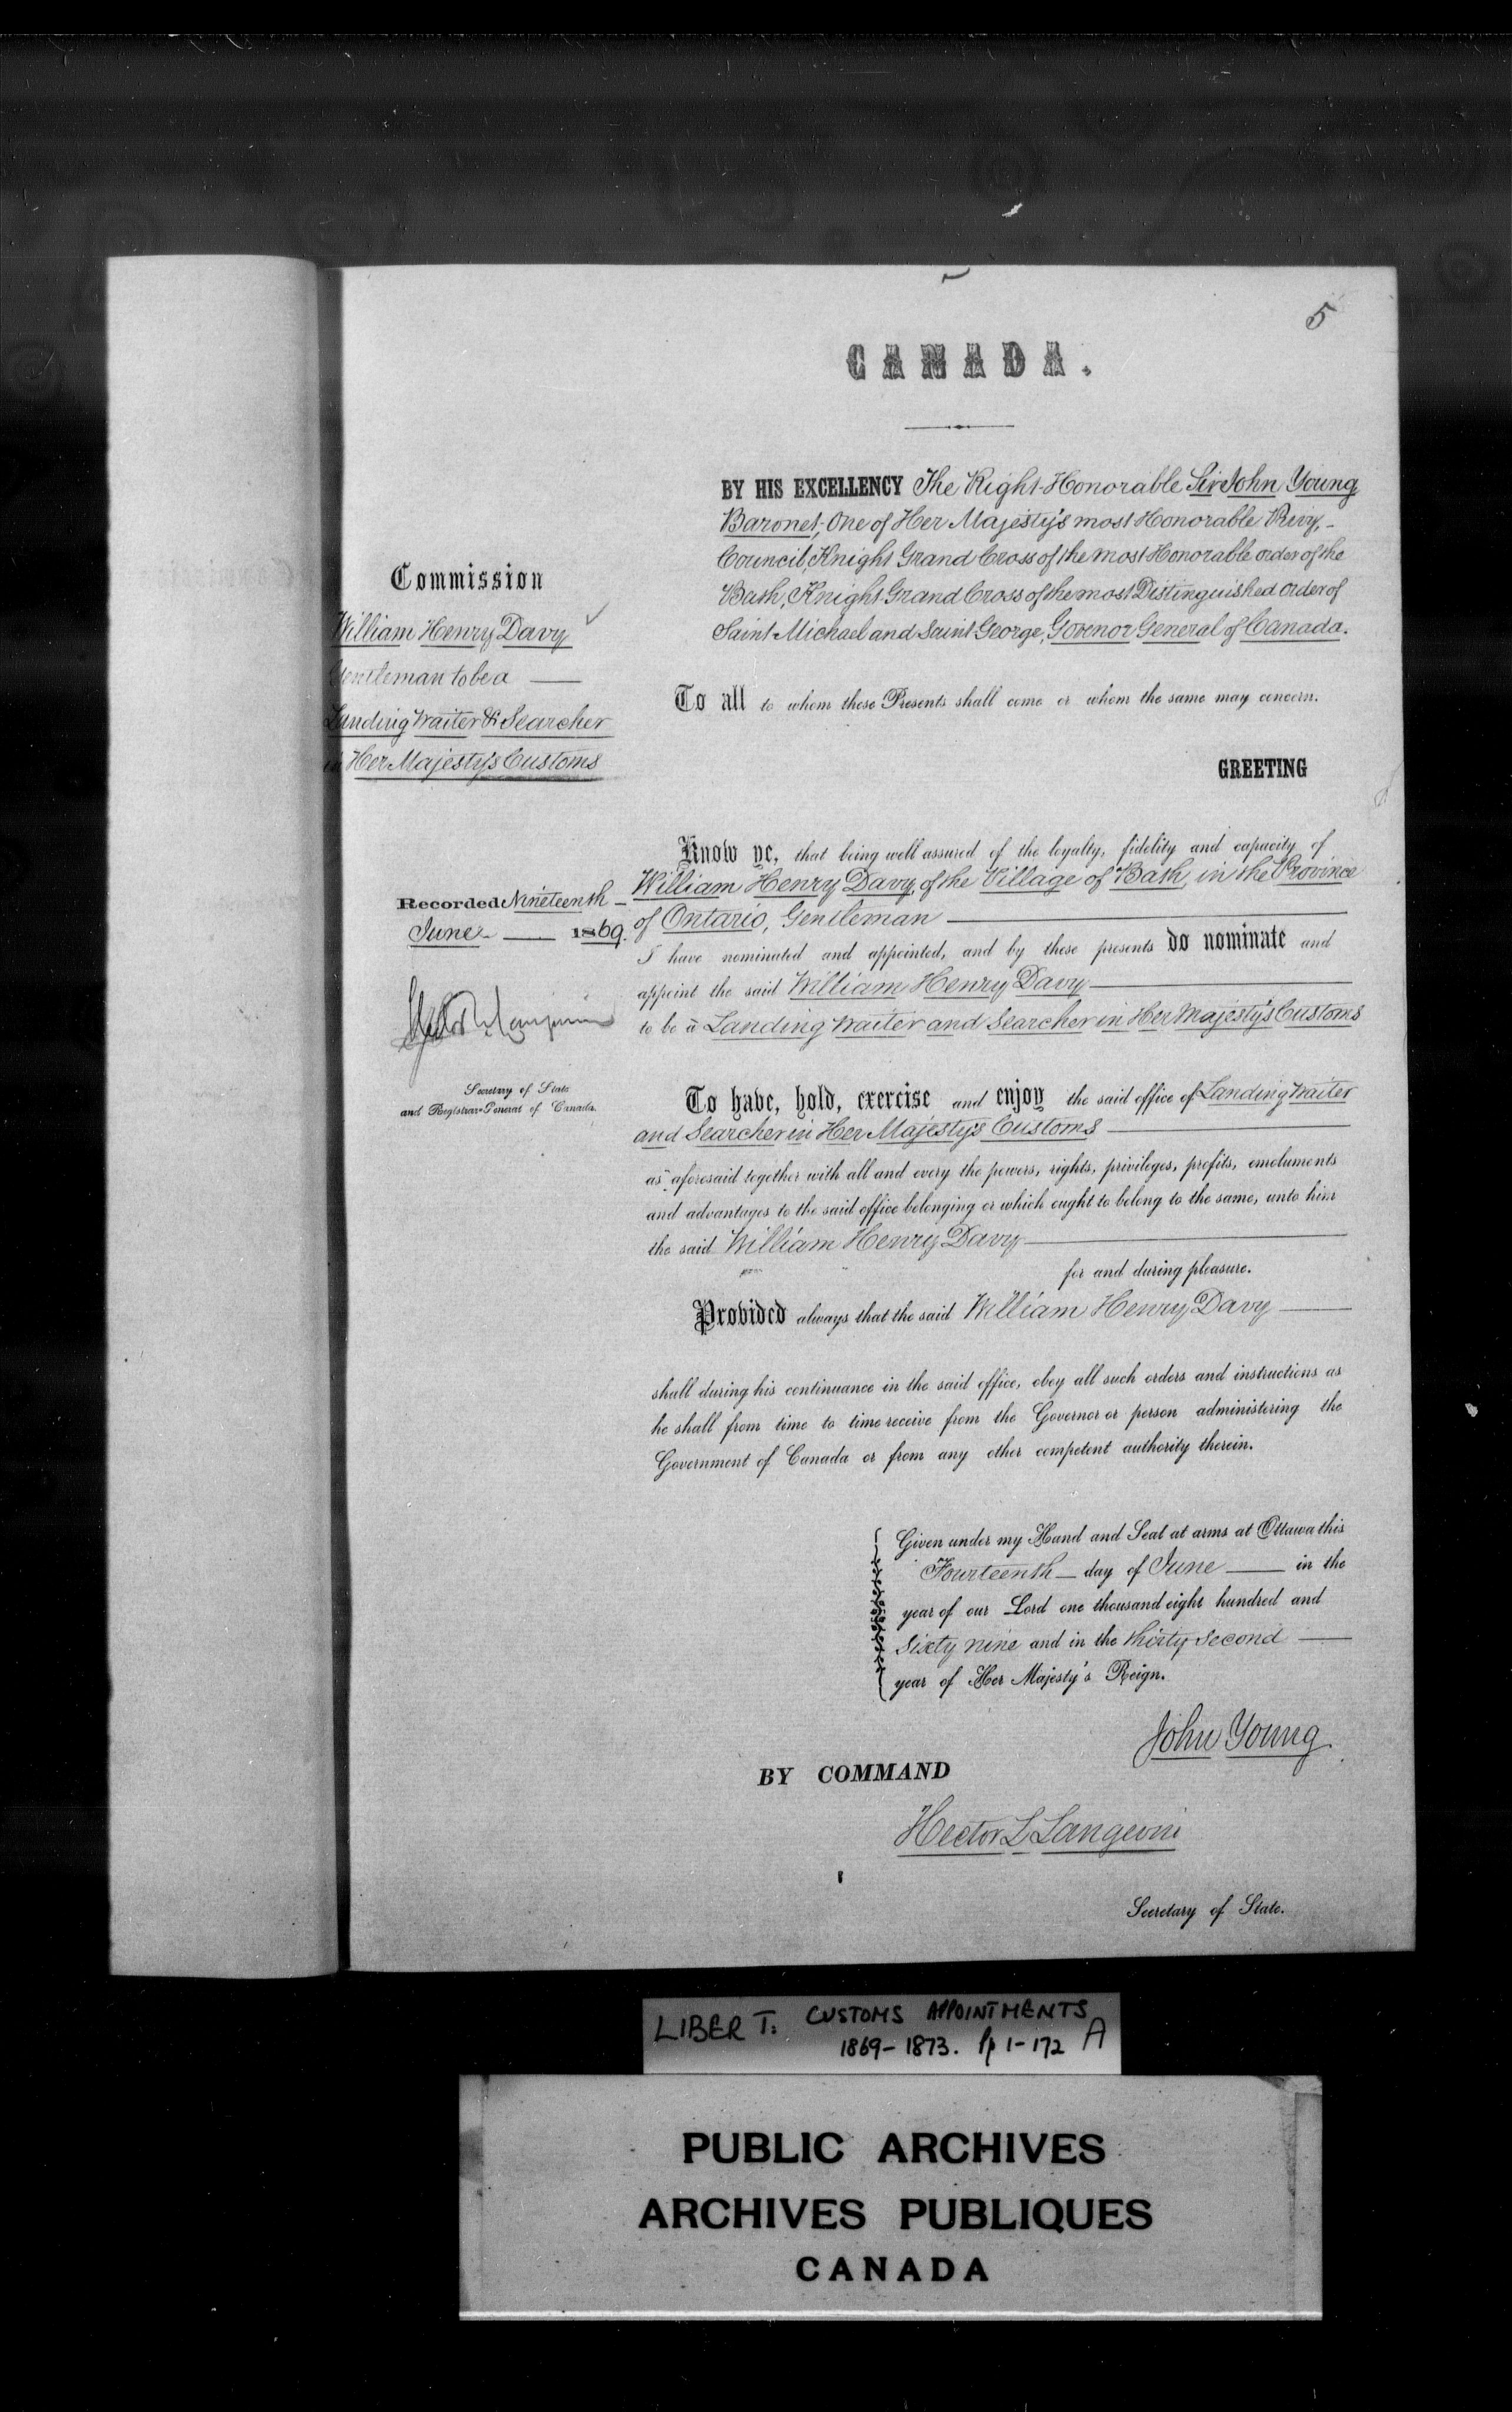 5
CANADA.
BY HIS EXCELLENCY The Right Honorable Sir John Young
Baronet, One of Her Majesty's most Honorable Privy,-
Council, Knight Grand Cross of the most Honorable order of the
Bath, Knight Grand Cross of the most Distinguished order of
Saint Michael and Saint George, Govenor General of Canada.
Commission
William Henry Davy
Gentleman to be a
Landing Waiter & Searcher
in Her Majesty's Customs
To all to whom these Presents shall come or whom the same may concern.
GREETING
Know ye, that being well assured of the loyalty, fidelity and capacity of
William Henry Davy, of the Village of Bath, in the Province
of Ontario, Gentleman
I have nominated and appointed, and by these presents do nominate and
appoint the said William Henry Davy
to be a Landing Waiter and Searcher in Her Majesty's Customs
Recorded Nineteenth
June 1869.
Secretary of State
and Registrar-General of Canada.
To have, hold, exercise and enjoy the said office of Landing Waiter
and Searcher in Her Majesty's Customs
as aforesaid together with all and every the powers, rights, privileges, profits, emoluments
and advantages to the said office belonging or which ought to belong to the same, unto him
the said William Henry Davy
for and during pleasure.
Provided always that the said William Henry Davy
shall during his continuance in the said office, obey all such orders and instructions as
he shall from time to time receive from the Governor or person administering the
Government of Canada or from any other competent authority therein.
Given under my Hand and Seal at arms at Ottawa this
Fourteenth day of June in the
year of our Lord one thousand eight hundred and
Sixty nine and in the thirty second
year of Her Majesty's Reign.
John Young
BY COMMAND
Hector L Langevin
Secretary of State.
LIBER T. CUSTOMS APPOINTMENTS
1869-1873. Pp 1-172 A
PUBLIC ARCHIVES
ARCHIVES PUBLIQUES
CANADA